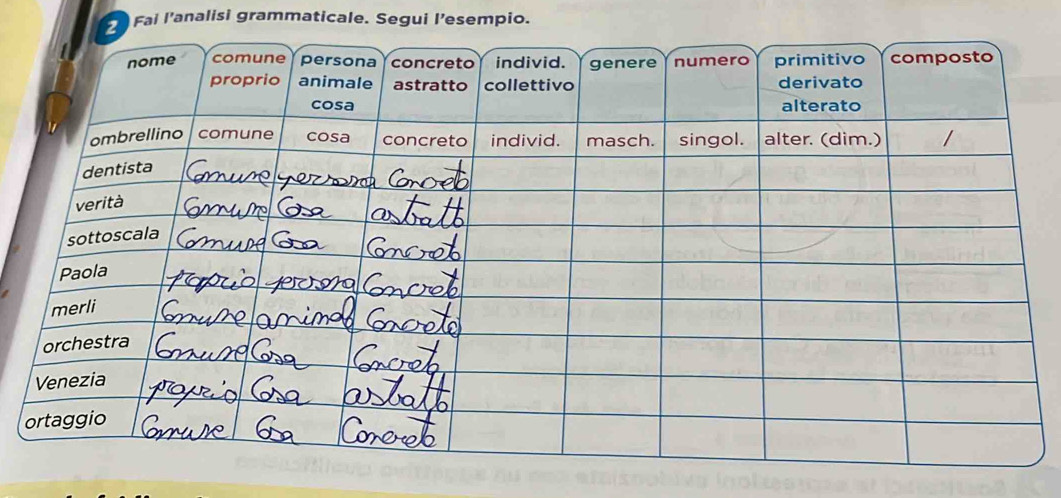 2 Fai l'analisi grammaticale. Segui l'esempio.
nome comune proprio persona animale cosa concreto astratto individ. collettivo genere numero primitivo derivato alterato composto
ombrellino comune cosa concreto individ. masch. singol. alter. (dim.) /
dentista Comune persona Concreto
verità Comune Cosa astratto
sottoscala Comune Cosa Concreto
Paola proprio persona Concreto
merli Comune animale Concreto
orchestra Comune Cosa Concreto
Venezia proprio Cosa astratto
ortaggio Comune Cosa Concreto